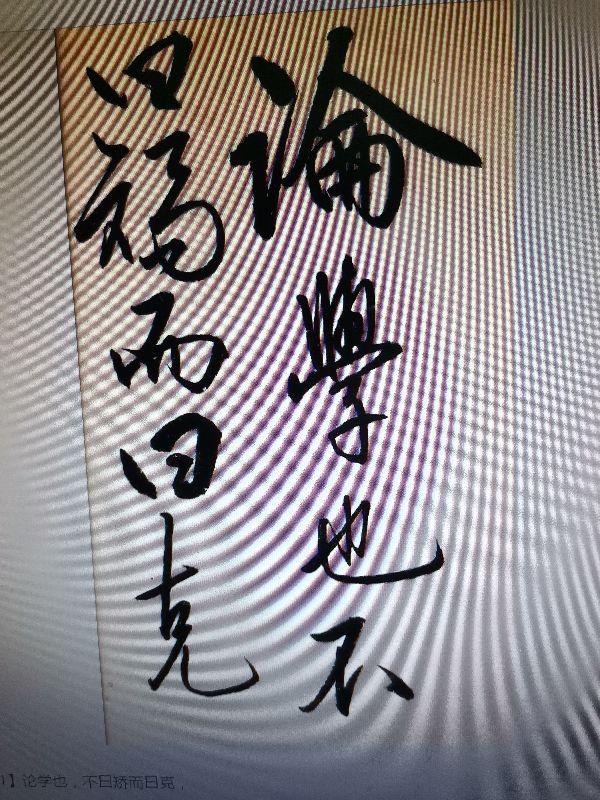 論學也不
曰矯而曰克
1】论学也，不曰矫而曰克，